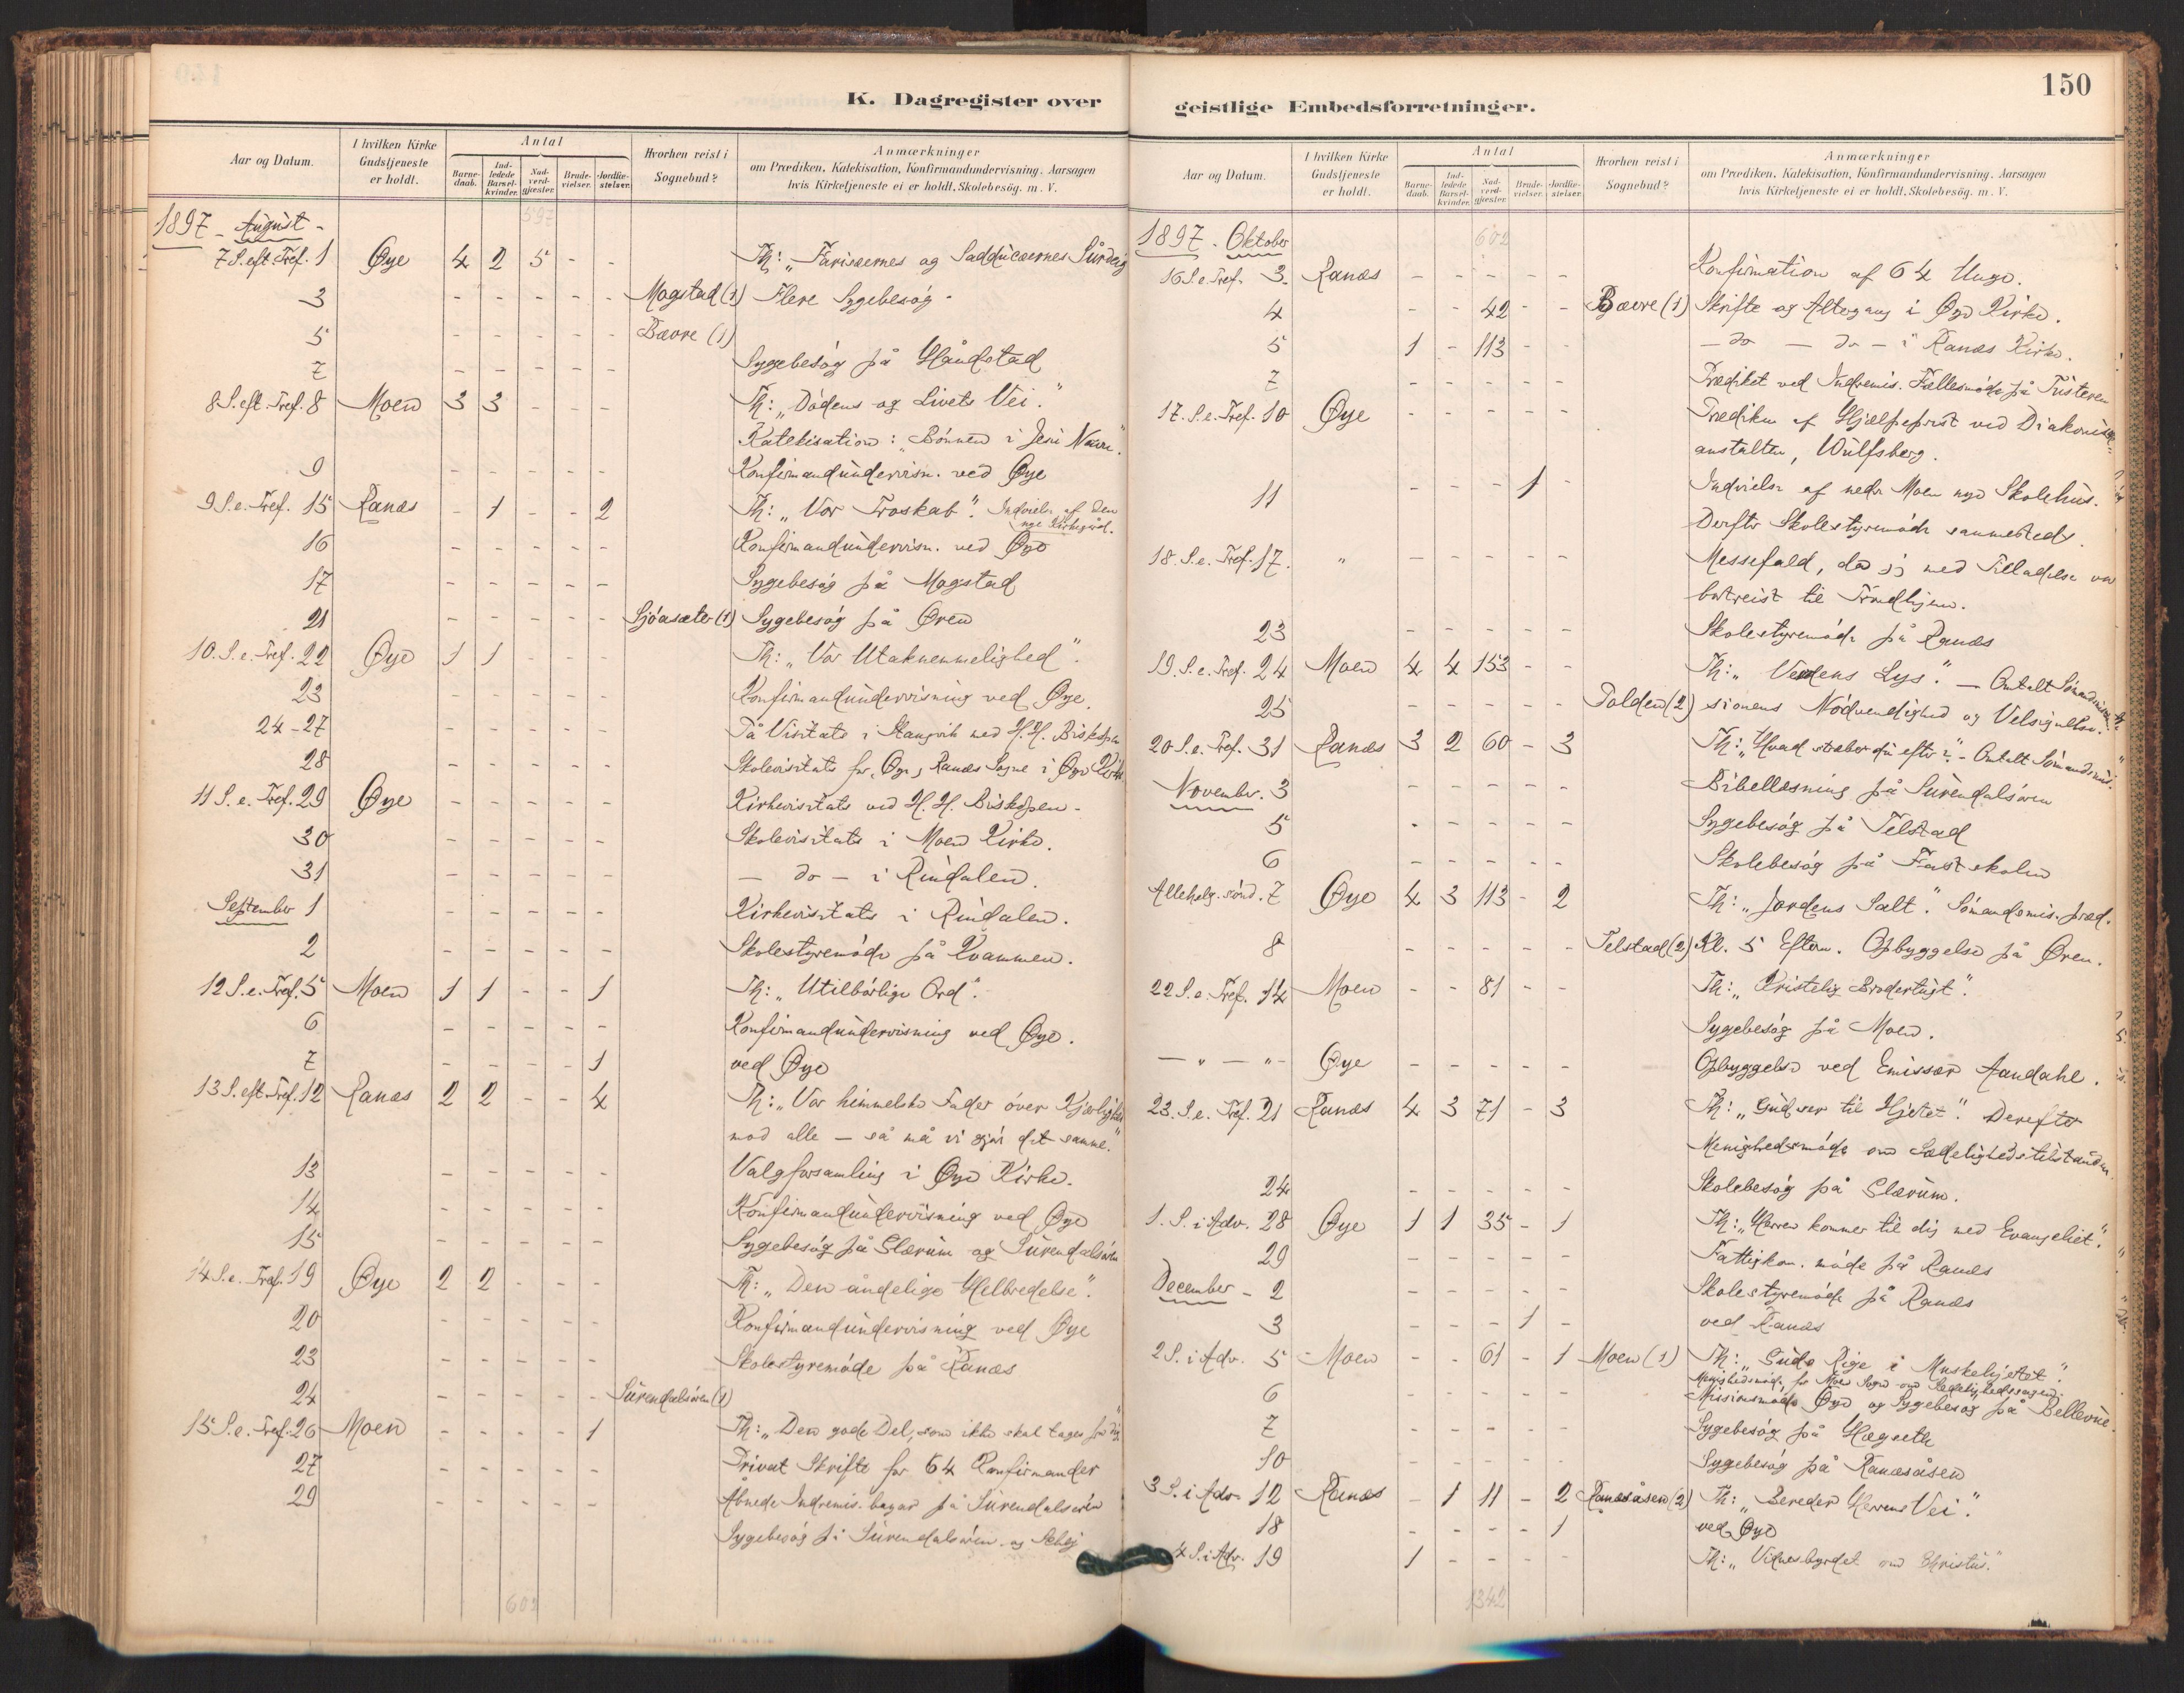 K. Dagregister over
Aar og Datum. | I hvilken Kirke Gudstjeneste er holdt. | Antal | Barne-daab. | Ind-ledede Barsel-kvinder. | Nad-verd-gjæster. | Brude-vielser. | Jordfæ-stelser. | Hvorhen reist i Sognebud? | Anmærkninger om Prædiken, Katekisation, Konfirmandundervisning. Aarsagen hvis Kirketjeneste ei er holdt. Skolebesög. m. V.
1897 - August - 597
7 S. eft. Tref. 1 Øye 4 2 5 - - Th: "Farisæernes og Sadducæernes Surdeig
3 - - - - - Mogstad (1) Flere Sygebesøg -
5 - - - - - Bævre (1)
7 - - - - - Sygebesøg på Håndstad
8 S. eft. Tref. 8 Moen 3 3 - - - Th: "Dødens og Livets Vei."
Katekisation: "Bønnen i Jesu Navn".
9 - - - - - Konfirmandundervisn. ved Øye
9 S. e. Tref. 15 Ranæs - 1 - - 2 Th: "Vor Troskab". Indvielse af den
nye Kirkegård.
16 - - - - - Konfirmandundervisn. ved Øye
17 - - - - - Sygebesøg på Mogstad
21 - - - - - Sjøasæter (1) Sygebesøg på Øren
10. S. e. Tref. 22 Øye 1 1 - - - Th: "Vor Utaknemmelighed".
23 - - - - - Konfirmandundervisning ved Øye.
24-27 - - - - - På Visitats i Stangvik med H.H. Biskopen
28 - - - - - Skolevisitats for Øye og Ranæs Sogne i Øye Kirke
11 S. e. Tref. 29 Øye - - - - - Kirkevisitats ved H.H. Biskopen -
30 - - - - - Skolevisitats i Moen Kirke.
31 - - - - - — do — i Rindalen.
September 1 - - - - - Kirkevisitats i Rindalen.
2 - - - - - Skolestyremøde på Kvammen.
12 S. e. Tref. 5 Moen 1 1 - - 1 Th: "Utilbørlige Ord".
6 - - - - - Konfirmandundervisning ved Øye.
7 - - - - 1 ved Øye
13 S. eft. Tref. 12 Ranæs 2 2 - - 4 Th: "Vor himmelske Fader øver Kjærlighed
mod alle — så må vi gjøre det samme."
13 - - - - - Valgforsamling i Øye Kirke.
14 - - - - - Konfirmandundervisning ved Øye
15 - - - - - Sygebesøg på Glærum og Surendalsøren
14 S. e. Tref. 19 Øye 2 2 - - - Th: "Den åndelige Helbredelse".
20 - - - - - Konfirmandundervisning ved Øye
23 - - - - - Skolestyremøde på Ranæs
24 - - - - - Surendalsøren (1)
15 S. e. Tref. 26 Moen - - - - 1 Th: "Den gode Del, som ikke skal tages fra dig
27 - - - - - Privat Skrifte for 64 Konfirmander
29 - - - - - Åbnede Indremis. bazar på Surendalsøren
Sygebesøg på Surendalsøren og
602
150
geistlige Embedsforretninger.
Aar og Datum. | I hvilken Kirke Gudstjeneste er holdt. | Antal | Barne-daab. | Ind-ledede Barsel-kvinder. | Nad-verd-gjæster. | Brude-vielser. | Jordfæ-stelser. | Hvorhen reist i Sognebud? | Anmærkninger om Prædiken, Katekisation, Konfirmandundervisning. Aarsagen hvis Kirketjeneste ei er holdt. Skolebesög. m. V.
1897 - Oktober 602
16 S. e. Tref. 3. Ranæs - - - - - Konfirmation af 64 Unge.
4 - - 42 - - Bævre (1) Skrifte og Altergang i Øye Kirke.
5 1 - 113 - - — do — do — i Ranæs Kirke.
7 - - - - - Prædiket ved Indremis. Fællesmøde på Tusteren
17. S. e. Tref. 10 Øye - - - - - Prædiken af Hjælpeprest ved Diakonisse-
anstalten, Wulfsberg.
11 - - - 1 - Indvielse af nedre Moen nye Skolehus.
Derefter Skolestyremøde sammesteds.
18. S. e. Tref. 17. " - - - - - Messefald, da jeg med Tilladelse var
bortreist til Trondhjem.
23 - - - - - Skolestyremøde på Ranæs
19. S. e. Tref. 24 Moen 4 4 153 - - Th: "Verdens Lys". — Omtalt Sømandsmis-
25 - - - - - Polden (2) sionens Nødvendighed og Velsignelse.
20 S. e. Tref. 31 Ranæs 3 2 60 - 3 Th: "Hvad stræber du efter?". - Omtalt Sømandsmis.
November. 3 - - - - - Bibellæsning på Surendalsøren
5 - - - - - Sygebesøg på Telstad
6 - - - - - Skolebesøg på Fastskolen
Allehelg. sønd. 7 Øye 4 3 113 - 2 Th: "Jordens Salt". Sømandsmis. præd.
8 - - - - - Telstad (2) Kl. 5 Efterm. Opbyggelse på Øren.
22 S. e. Tref. 14 Moen - - 81 - - Th: "Kristelig Brodertugt".
Sygebesøg på Moen.
— " — " - Øye - - - - - Opbyggelse ved Emissær Aandahl.
23. S. e. Tref. 21 Ranæs 4 3 71 - 3 Th: "Gud ser til Hjertet". Derefter
Menighedsmøde om Sædelighedstilstanden
24 - - - - - Skolebesøg på Glærum.
1. S. i Adv. 28 Øye 1 1 35 - 1 Th: "Herren kommer til dig med Evangeliet".
29 - - - - - Fattigkom. møde på Ranæs
December - 2 - - - - - Skolestyremøde på Ranæs
3 - - - 1 - ved Ranæs
2 S. i Adv. 5 Moen - - 61 - 1 Moen (1) Th: "Guds Rige i Menskehjertet".
Menighedsmøde for Moen Sogn om Sædelighedssagen.
6 - - - - - Missionsmøde Øye og Sygebesøg på Bellevue.
7 - - - - - Sygebesøg på Hægseth
10 - - - - - Sygebesøg på Ranæsåsen
3 S. i Adv. 12 Ranæs - 1 11 - 2 Ranæsåsen (2) Th: "Bereder Herrens Vei".
18 - - - - 1 ved Øye
4 S. i Adv. 19 1 - - - - Th: "Vidnesbyrdet om Christus."
1342